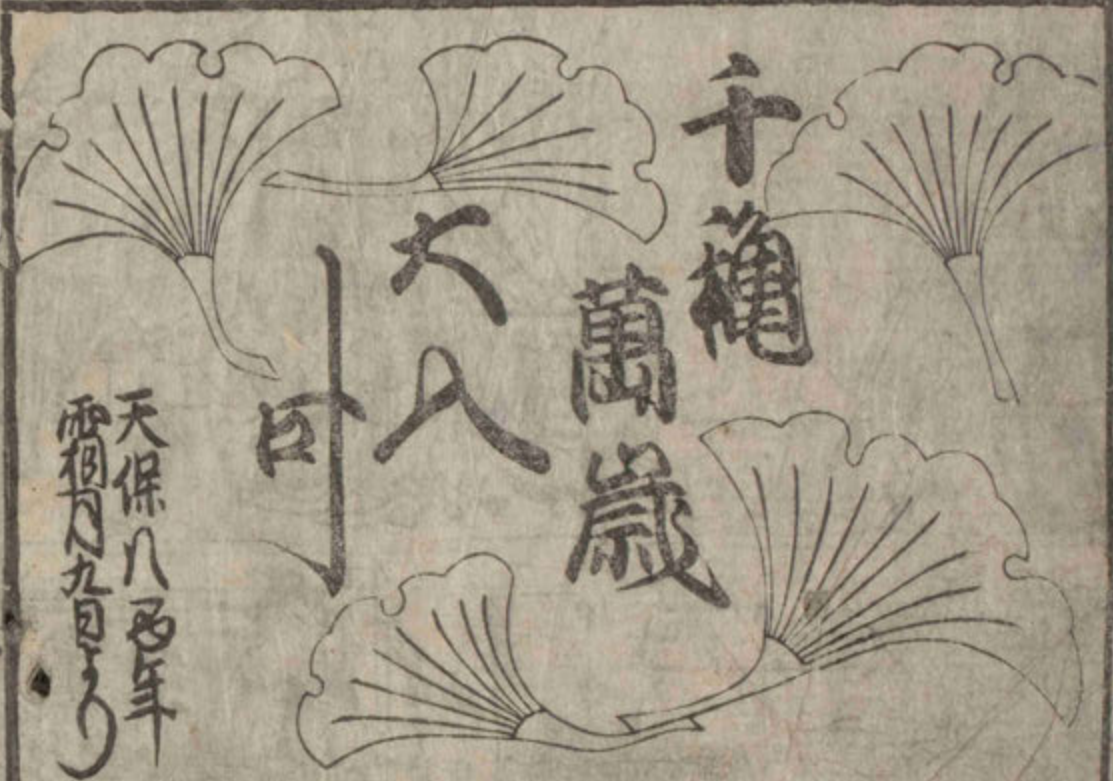 千穐
萬歳
大入
叶
天保八酉年
霜月九日より